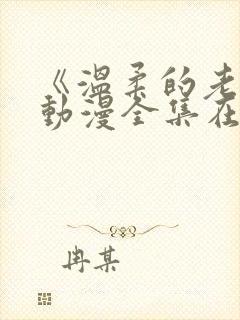 《温柔的老
动漫全集在
冉某